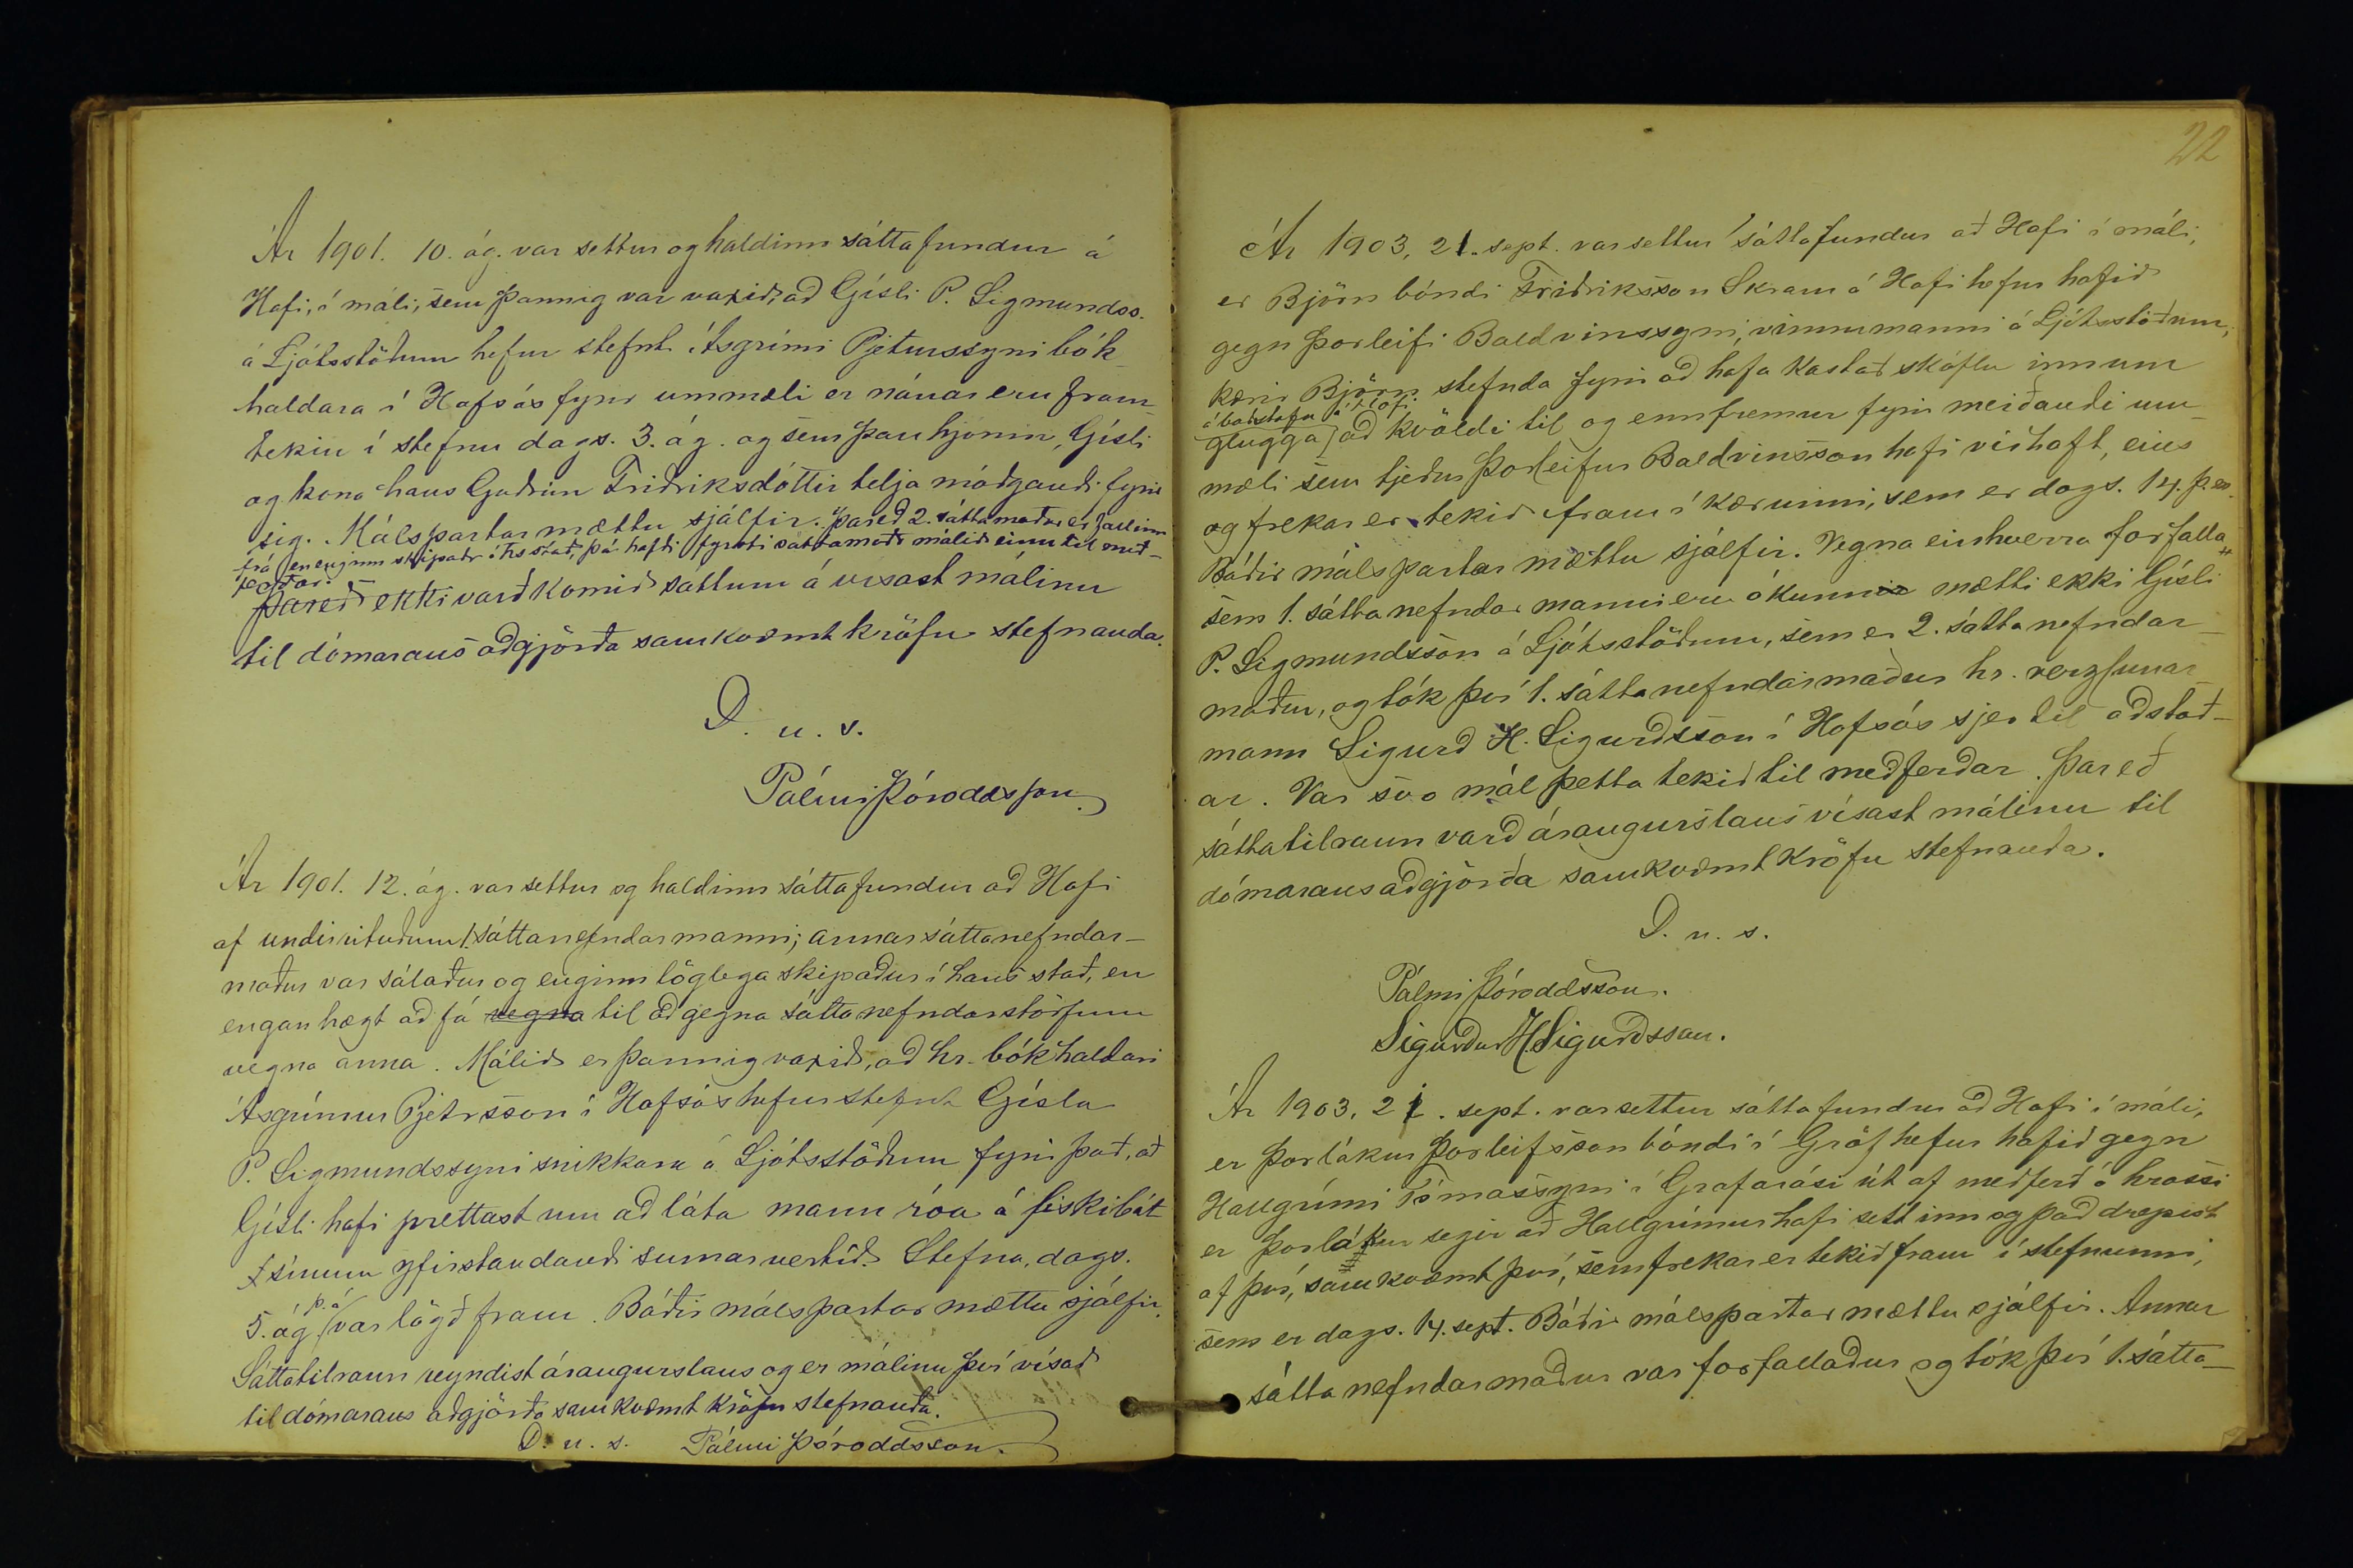 Ár 1901. 10. ág. var settur og haldinn sáttafundur á
Hofi, í máli, sem þannig var vaxið, að Gísli P. Sigmundss.
á Ljótsstöðum hefur stefnt Ásgrími Pjeturssyni bók-
haldara í Hofsós fyrir ummæli er nánar eru fram-
tekin í stefnu dags. 3. ág. og sem þau hjónin, Gísli
og kona hans Guðrún Friðriksdóttir telja móðgandi fyrir
sig. Málspartar mættu sjálfir. Þareð 2. sáttamaður er fallinn
frá en enginn skipaðr í hs stað, þá hafði fyrsti sáttamaðr málið einn til með-
ferðar.
Þareð ekki varð komið sáttum á vísast málinu
til dómarans aðgjörða samkvæmt kröfu stefnanda.
D. u. s.
Pálmi Þóroddsson
Ár 1901. 12. ág. var settur og haldinn sáttafundur að Hofi
af undirrituðum 1. sáttanefndarmanni; annar sáttanefndar-
maður var sálaður og enginn löglega skipaður í hans stað, en
engan hægt að fá vegna til að gegna sáttanefndarstörfum
vegna anna. Málið er þannig vaxið, að hr. bókhaldari
Ásgrímur Pjetrsson í Hofsós hefur stefnt Gísla
P. Sigmundssyni snikkara á Ljótsstöðum fyrir það, að
Gísli hafi prettast um að láta mann róa á fiskibát
sínum yfirstandandi sumarvertíð. Stefna, dags.
5. ág. þ. á. var lögð fram. Báðir málspartar mættu sjálfir.
Sáttatilraun reyndist árangurslaus og er málinu því vísað
til dómarans aðgjörða samkvæmt kröfu stefnanda.
D. u. s. Pálmi Þóroddsson.
22
Ár 1903, 21. sept. var settur sáttafundur að Hofi í máli,
er Björn bóndi Friðriksson Skram á Hofi hefur hafið
gegn Þorleifi Baldvinssyni, vinnumanni á Ljótsstöðum,
kærir Björn stefnda fyrir að hafa kastað skóflu inn um
á baðstofu á Hofi
glugga að kvöldi til og ennfremur fyrir meiðandi um-
mæli sem tjeður Þorleifur Baldvinsson hafi viðhaft, eins
og frekar er tekið fram í kærunni, sem er dags. 14. þ. m.
Báðir málspartar mættu sjálfir. Vegna einhverra forfalla,
sem 1. sáttanefndarmanni eru ókunn mætti ekki Gísli
P. Sigmundsson á Ljótsstöðum, sem er 2. sáttanefndar-
maður, og tók því 1. sáttanefndarmaður hr. verzlunar-
mann Sigurð H. Sigurðsson í Hofsós sjer til aðstoð-
ar. Var svo mál þetta tekið til meðferðar. Þareð
sáttatilraun varð árangurslaus vísast málinu til
dómarans aðgjörða samkvæmt kröfu stefnanda.
D. u. s.
Pálmi Þóroddsson.
Sigurður H. Sigurðsson.
Ár 1903, 21. sept. var settur sáttafundur að Hofi í máli,
er Þorlákur Þorleifsson bóndi í Gröf hefur hafið gegn
Hallgrími Tómassyni í Grafarósi út af meðferð á hrossi
er Þorlákur segir að Hallgrímur hafi sett inn og það drepist
af því, samkvæmt því, sem frekar er tekið fram í stefnunni,
sem er dags. 14. sept. Báðir málspartar mættu sjálfir. Annar
sáttanefndarmaður var forfallaður og tók því 1. sátta-